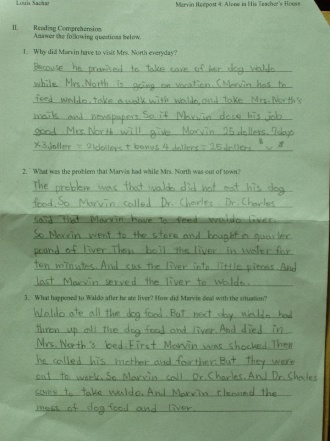 Louis Sachar Marvin Redpost 4: Alone in His Teacher's House
II. Reading Comprehension
Answer the following questions below.
1. Why did Marvin have to visit Mrs. North everyday?
Because he promised to take care of her dog Waldo
while Mrs. North is going on vacation. (Marvin has to
feed Waldo, take a walk with Waldo, and take Mrs. North's
mails and newspapers. So if Marvin dose his job
good Mrs. North will give Marvin 25 dollers. 7days
x3doller = 21dollers + bonus 4 dollers = 25 dollers
2. What was the problem that Marvin had while Mrs. North was out of town?
The problem was that Waldo did not eat his dog
food. So Marvin called Dr. Charles. Dr. Charles
said that Marvin have to feed Waldo liver.
So Marvin went to the store and bought a quarter
pound of liver. Then boil the liver in water for
ten minutes. And cut the liver into little pieces. And
last Marvin served the liver to Waldo.
3. What happened to Waldo after he ate liver? How did Marvin deal with the situation?
Waldo ate all the dog food. But next day Waldo had
thron up all the dog food and liver. And died in
Mrs. North's bed. First Marvin was shocked. Then
he called his mother and farther. But they were
at to work. So Marvin call Dr. Charles. And Dr. Charles
came to take Waldo. And Marvin cleaned the
mess of dog food and liver.